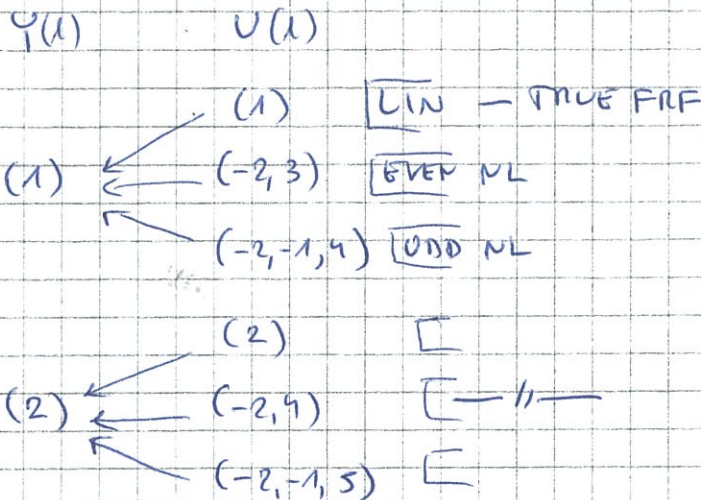 Y(1) U(1)
(1) LIN — TRUE FRF
(1) (-2,3) EVEN NL
(-2,-1,4) ODD NL
(2)
(2) (-2,4) —〃—
(-2,-1,5)